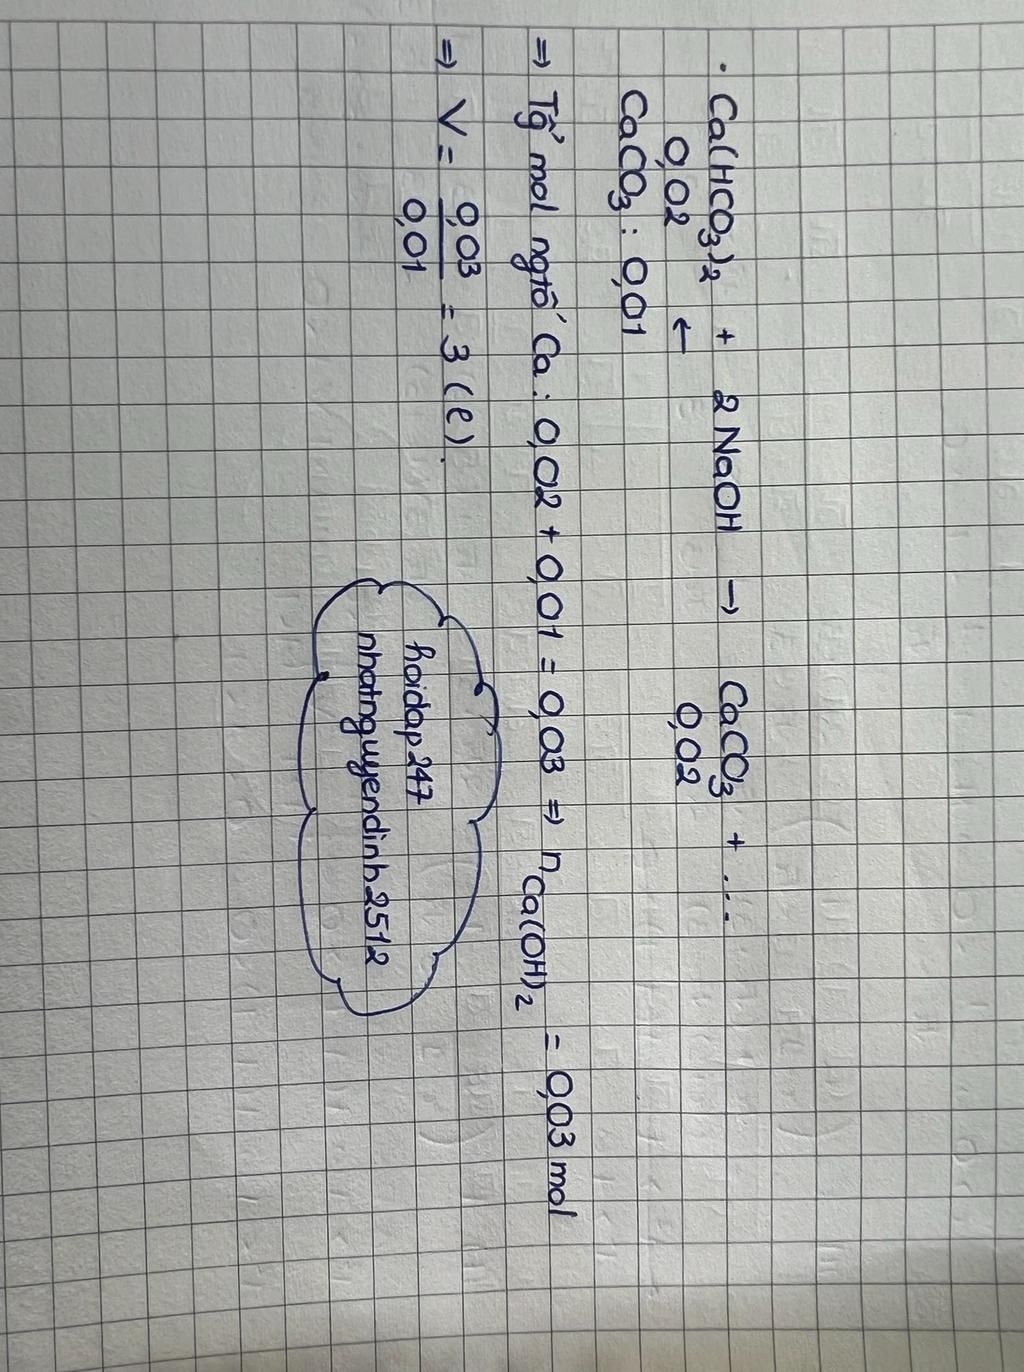 · Ca(HCO₃)₂ + 2NaOH → CaCO₃ + ...
0,02 ← 0,02
CaCO₃ : 0,01
⇒ Tg̉ mol ngtố Ca : 0,02 + 0,01 = 0,03 ⇒ n Ca(OH)₂ = 0,03 mol
⇒ V = 0,03/0,01 = 3 (l).
hoidap247
nhatnguyendinh2512